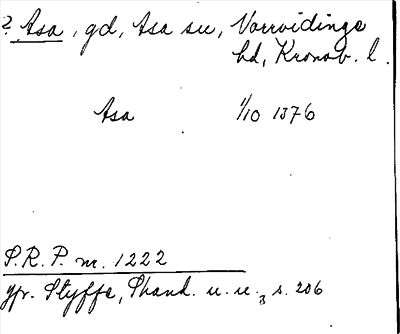 ? Asa, gd, Asa sn, Norrvidinge
hd, Kronob. l.
Asa 1/10 1376
S.R.P. nr. 1222
jfr. Styffe, Skand. u. u. 3 s. 206